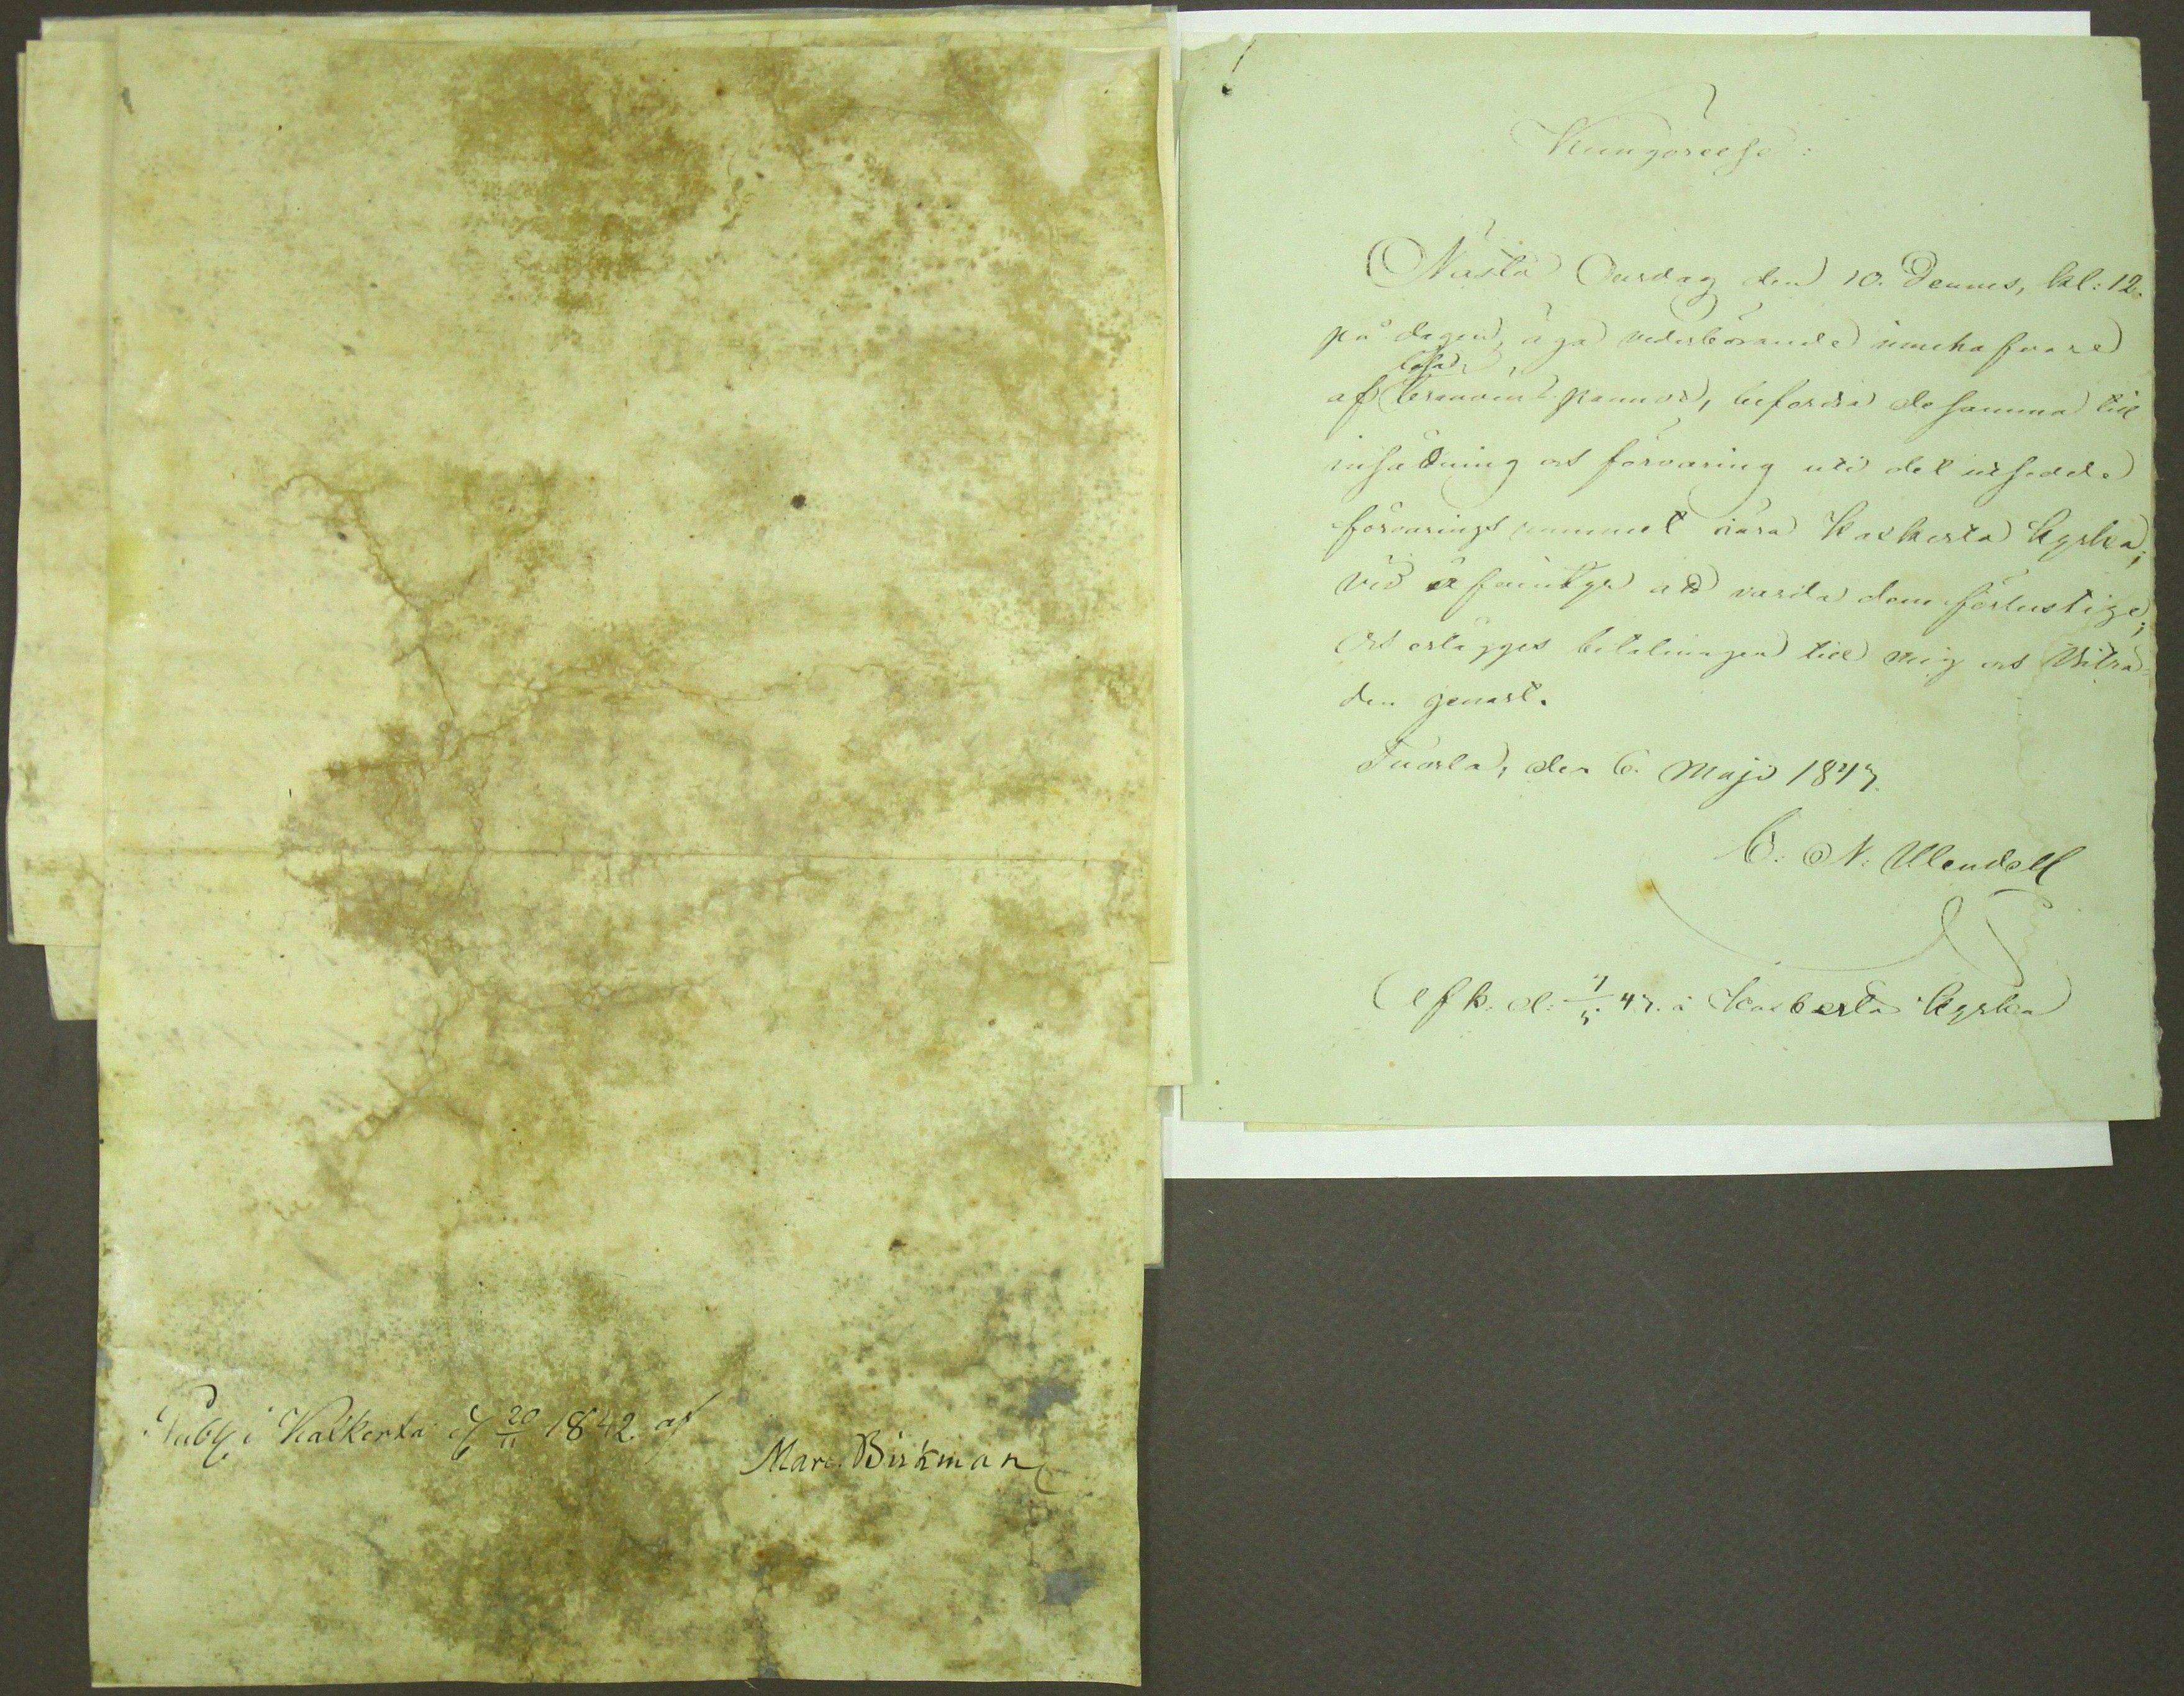 Publ. i Kakkerta d. 20/11 1842. af
Marc. Birkman
Kungörelse:
Nästa Onsdag den 10. Dennes, kl: 12.
på dagen, äga vederbörande innehafvare
lösa
af Bränvins pannor, befordra desamma till
insättning och förvaring uti det utsedda
förvarings rummet nära Kakskerta kyrka;
vid äfventyr att varda dem förlustige;
Och erlägges betalningen till mig och Biträ-
den genast.
Tuorla, den 6. Maji 1847.
C. N. Wendell
Afk. d: 7/5. 47. i Kakskerta kyrka